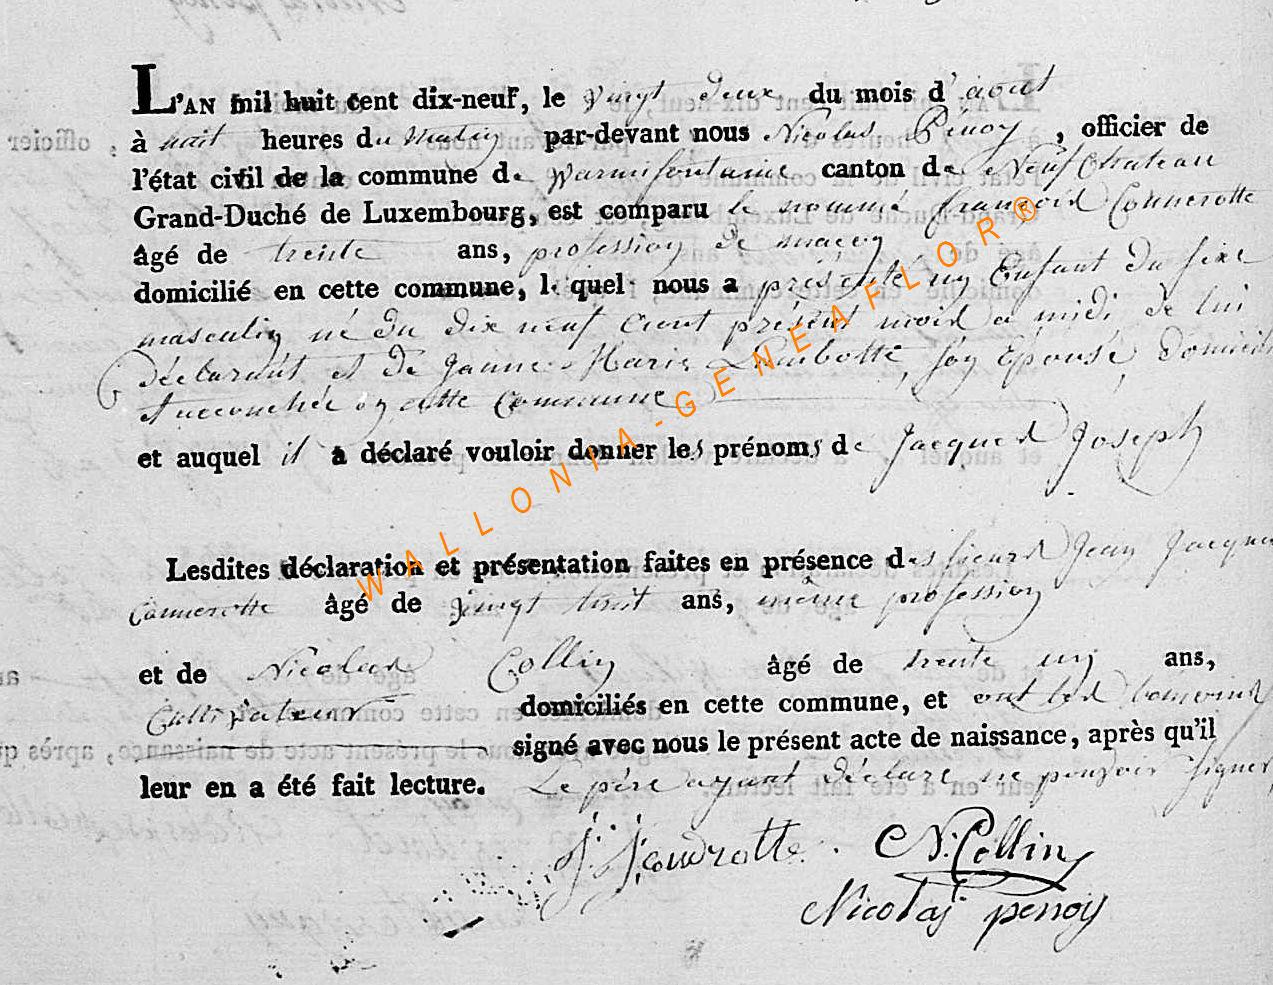 L'AN mil huit cent dix-neuf, le vingt deux du mois d'août
à huit heures du matin par-devant nous Nicolas Pénoy, officier de
l'état civil de la commune de Warmifontaine canton de Neufchateau
Grand-Duché de Luxembourg, est comparu le nommé françois Connerotte
âgé de trente ans, profession de maçon
domicilié en cette commune, le quel nous a présenté un Enfant du sexe
masculin né du dix neuf Cront présent mois a midi de lui
déclarant et de Jeanne Marie Lambotte, son Epouse, domicili
et accouchée en cette Commune
et auquel il a déclaré vouloir donner les prénoms de Jacques Joseph
Lesdites déclaration et présentation faites en présence des sieurs Jean Jacques
Connerotte âgé de vingt huit ans, même profession
et de Nicolas Collin âgé de trente un ans,
Cultivateur domiciliés en cette commune, et ont les temoins
signé avec nous le présent acte de naissance, après qu'il
leur en a été fait lecture. Le père ayant déclaré ne pouvoir signer
N. Collin
Nicolas penoy
WALLONIA-GENEAFLOR®